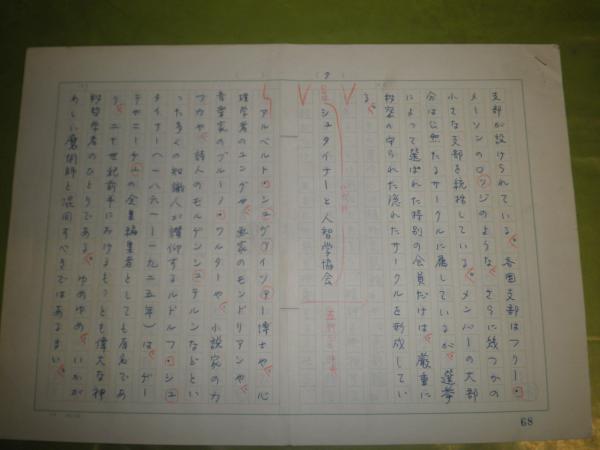 支部が設けられている。各国支部はフリー・
メーソンのロッジのような、さらに幾つかの
小さな支部を統括している。メンバーの大部
分は公然たるサークルに属しているが、選挙
によって選ばれた特別の会員だけは、厳重に
秘密の守られた隠れたサークルを形成してい
る。
7
シュタイナーと人智学協会
アルベルト・シュヴァイツァー博士や、心
理学者のユングや、画家のモンドリアンや、
音楽家のブルーノ・ワルターや、小説家のカ
フカや、詩人のモルゲンシュテルンなどとい
った多くの知識人が讃仰するルドルフ・シュ
タイナー(一八六一―一九二五年)は、ゲー
テやニーチェの全集編集者としても有名であ
り、二十世紀前半におけるもっとも偉大な神
秘哲学者のひとりである。ゆめゆめ、いかが
わしい魔術師と混同すべきではあるまい。
68